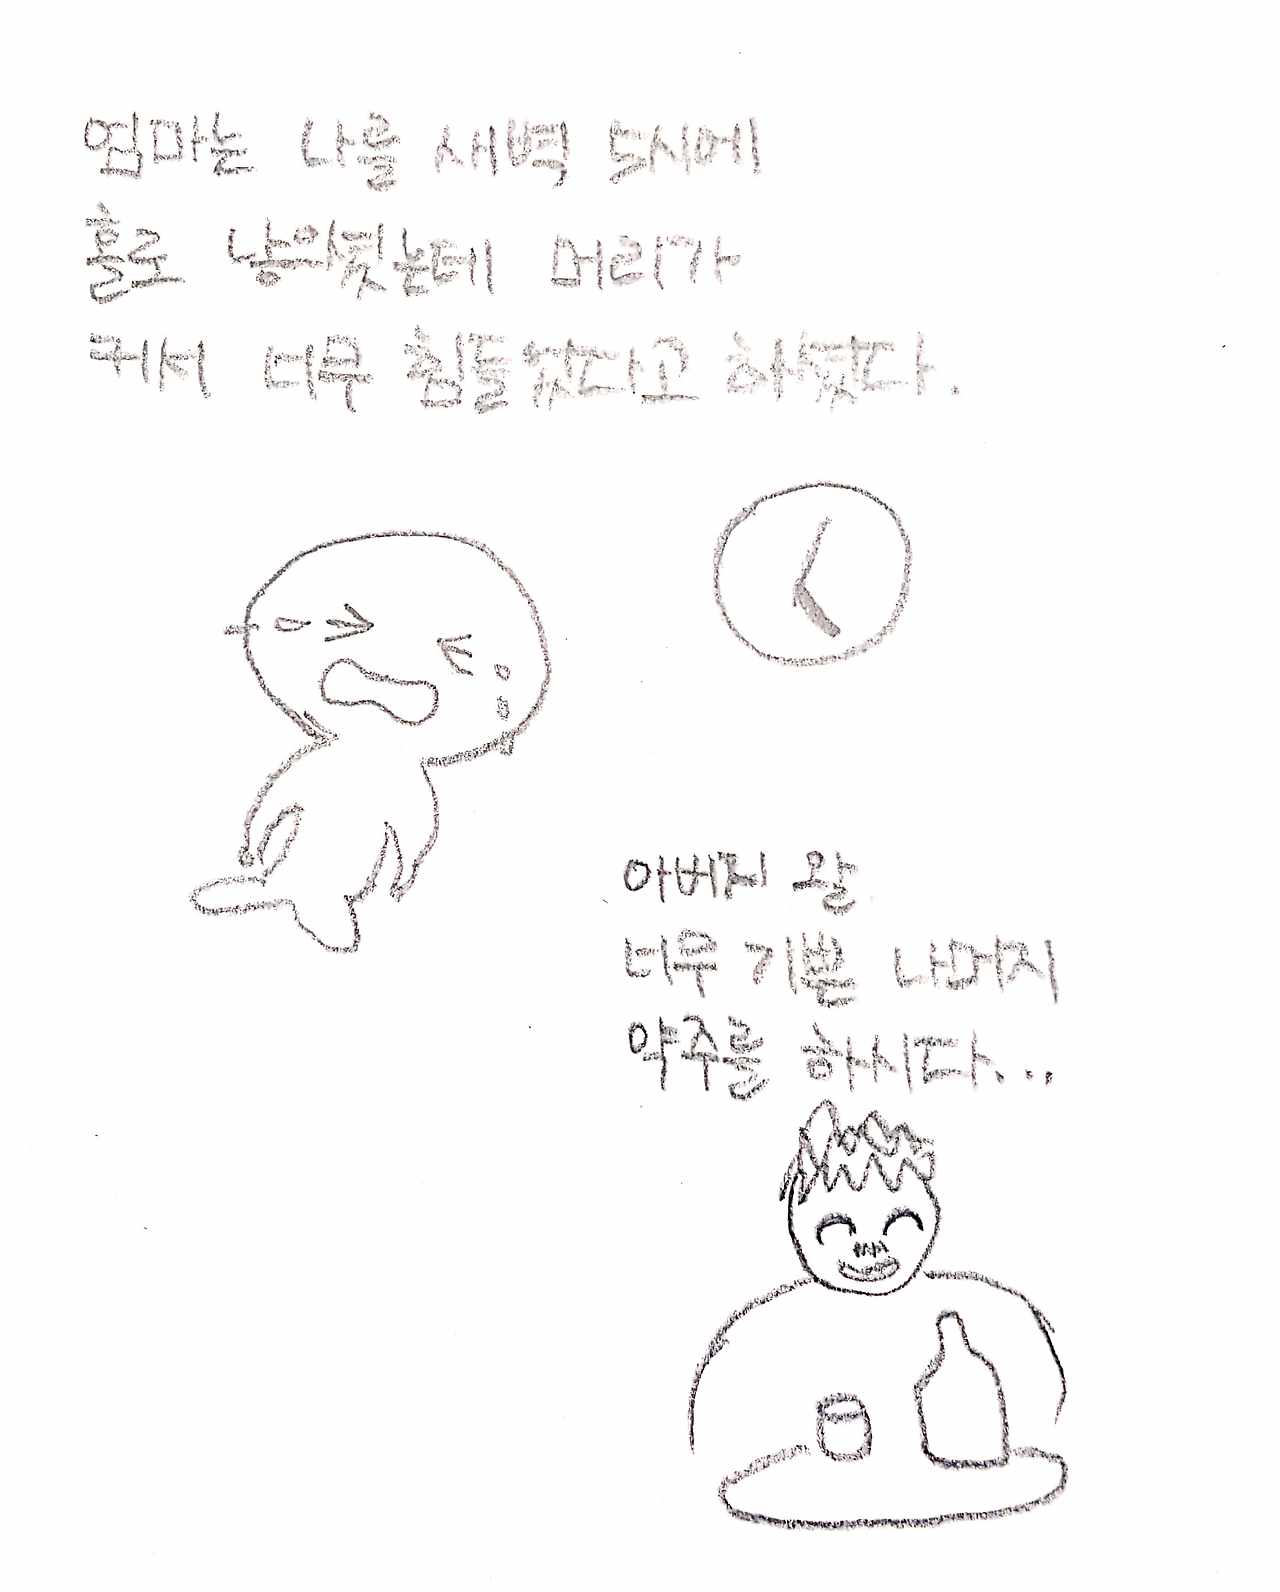 엄마는 나를 새벽 5시에
홀로 낳으셨는데 머리가
커서 너무 힘들었다고 하셨다.
아버지 왈
너무 기쁜 나머지
약주를 하시다...